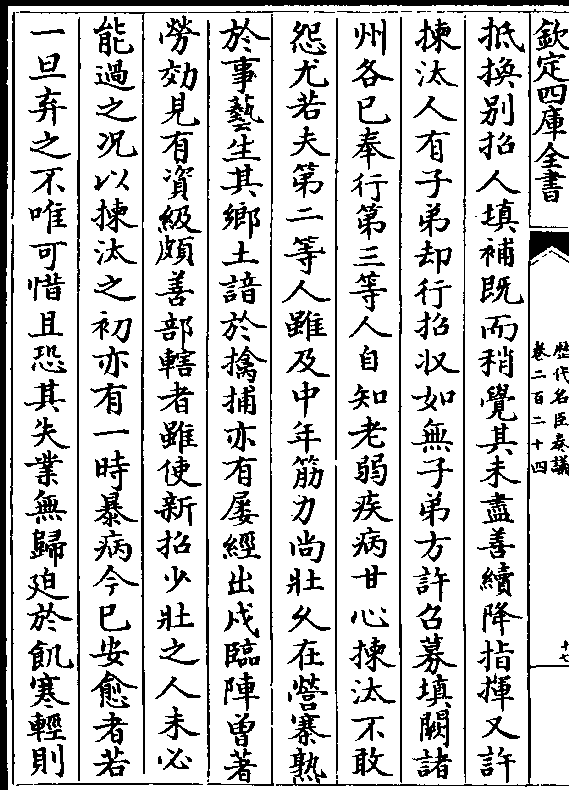 欽定四庫全書
歷代名臣奏議
卷二百二十四
十七
抵換別招人填補既而稍覺其未盡善續降指揮又許
揀汰人有子弟却行招収如無子弟方許召募填闕諸
州各已奉行第三等人自知老弱疾病甘心揀汰不敢
怨尤若夫第二等人雖及中年筋力尚壯久在營寨熟
於事藝生其鄉土諳於擒捕亦有屡經出戍臨陣曽著
勞効見有資級頗善部轄者雖使新招少壯之人未必
能過之况以揀汰之初亦有一時暴病今已安愈者若
一旦弃之不唯可惜且恐其失業無歸廹於飢寒輕則